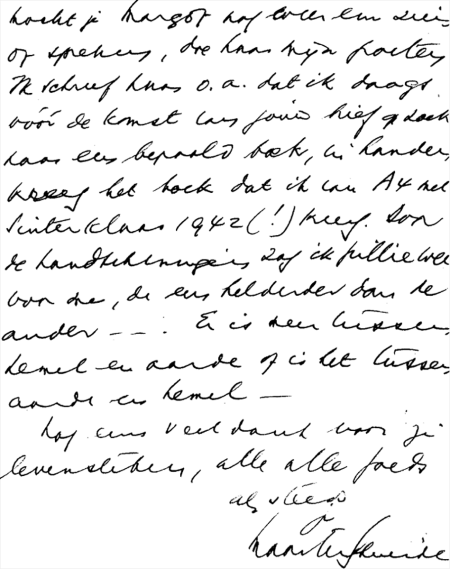 mocht je Margot nog weer eens zien
of spreken, doe haar mijn groeten
Ik schreef haar o.a. dat ik daags
vóór de komst van jouw brief op zoek
naar een bepaald boek, in handen
kreeg het boek dat ik van A4 met
Sinterklaas 1942 (!) kreeg. Door
de handtekeningen zag ik jullie twee
voor me, de een helderder dan de
ander ---. Er is meer tussen
hemel en aarde of is het tussen
aarde en hemel —
Nog eens veel dank voor je
levensteken, alle alle goeds
als steeds
je